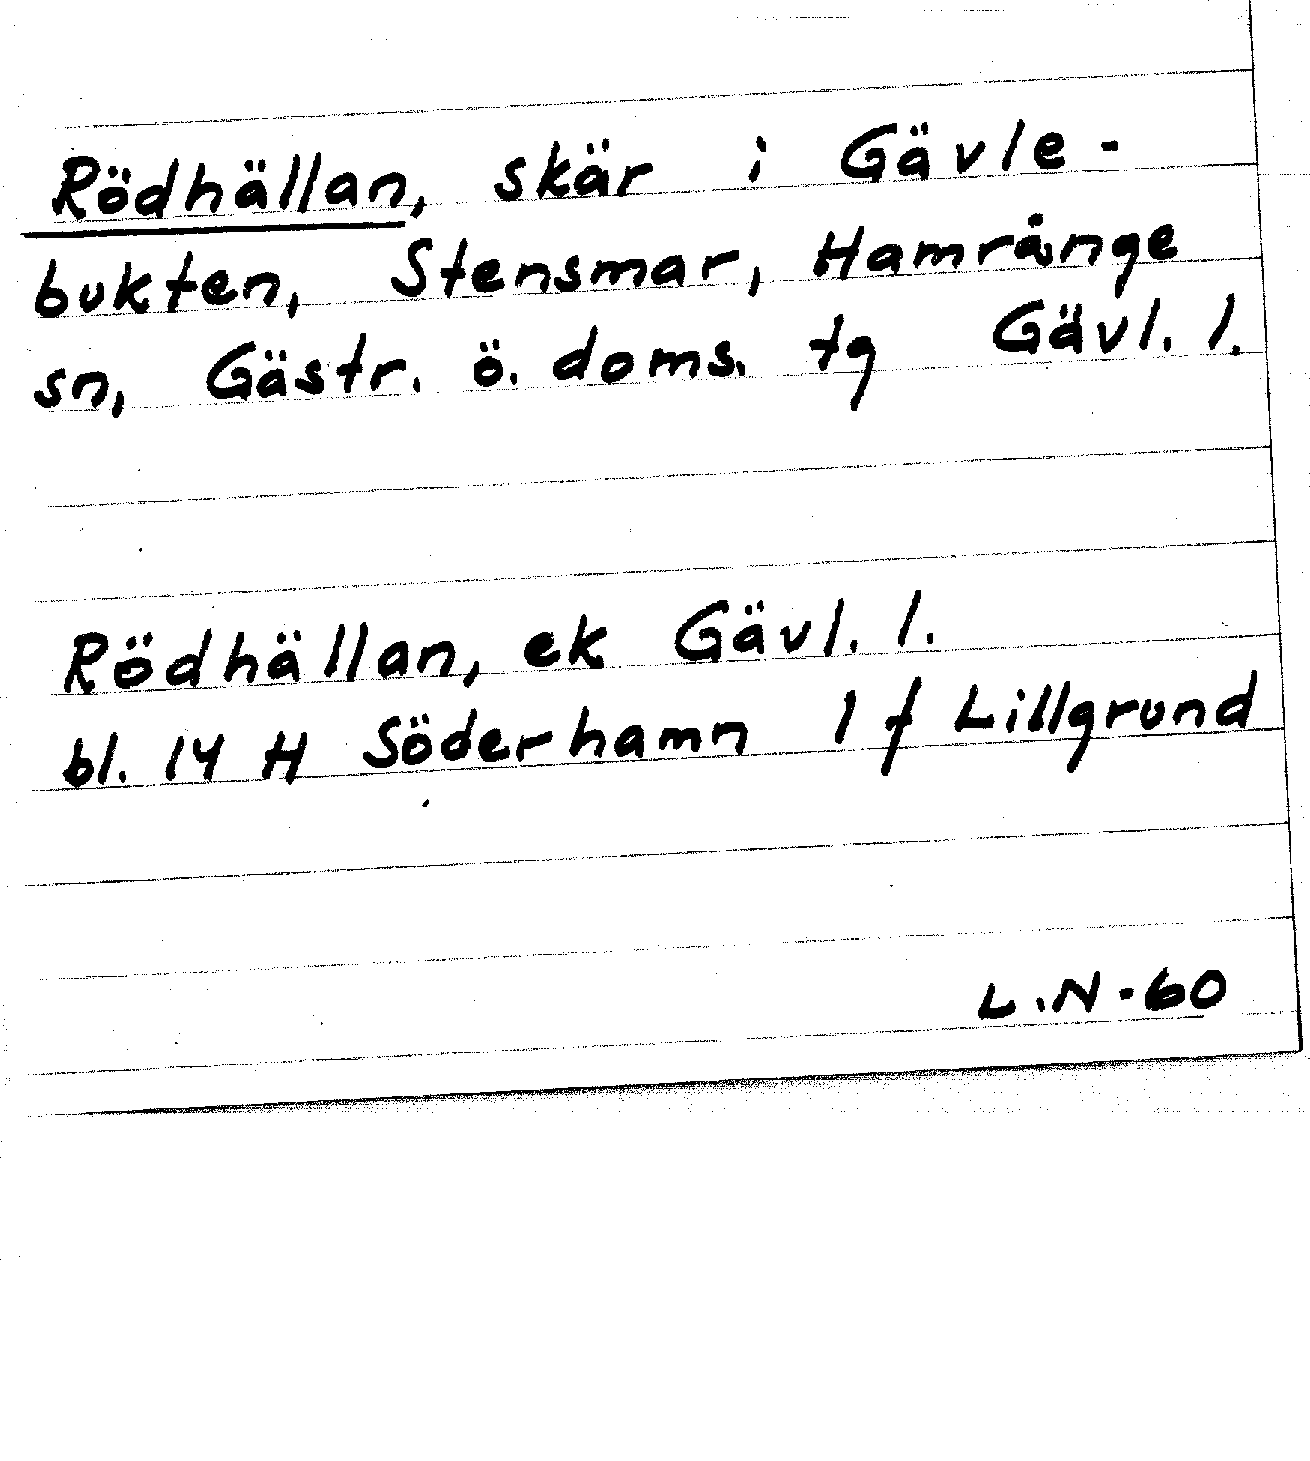 Rödhällan, skär i Gävle-
bukten, Stensmar, Hamrånge
sn, Gästr. ö. doms. tg Gävl. l.
Rödhällan, ek Gävl. l.
bl. 14 H Söderhamn 1 f Lillgrund
L.N-60